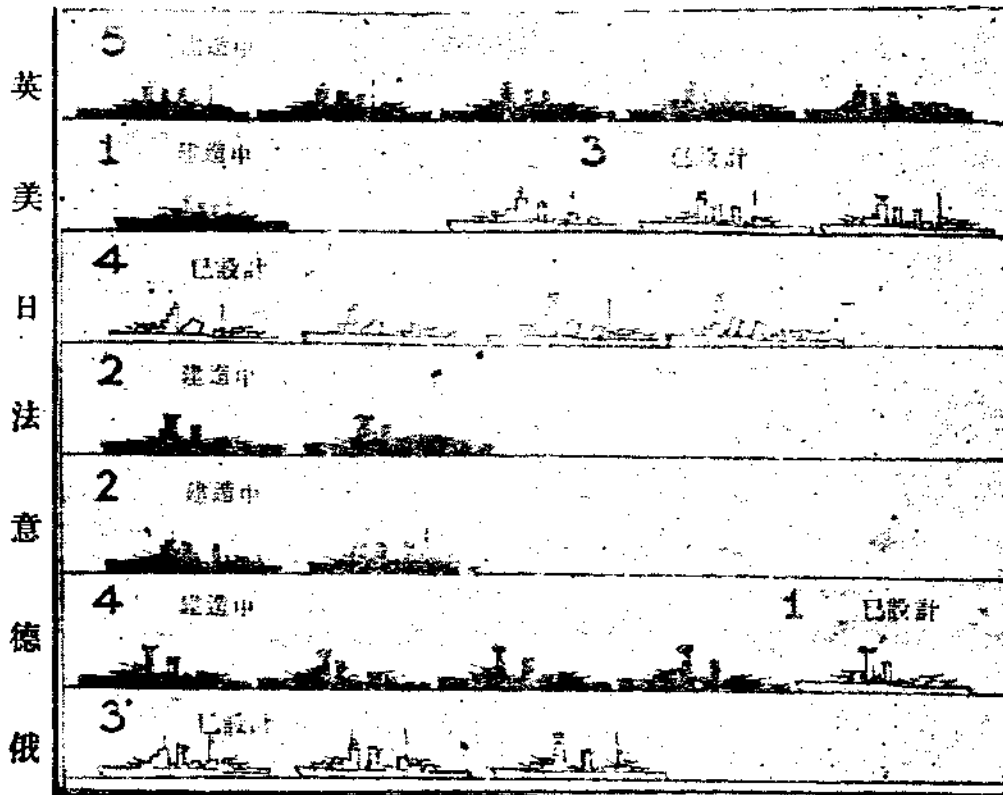 英
5 建造中
美
1 建造中 3 已設計
日
4 已設計
法
2 建造中
意
2 建造中
德
4 建造中 1 已設計
俄
3 已設計